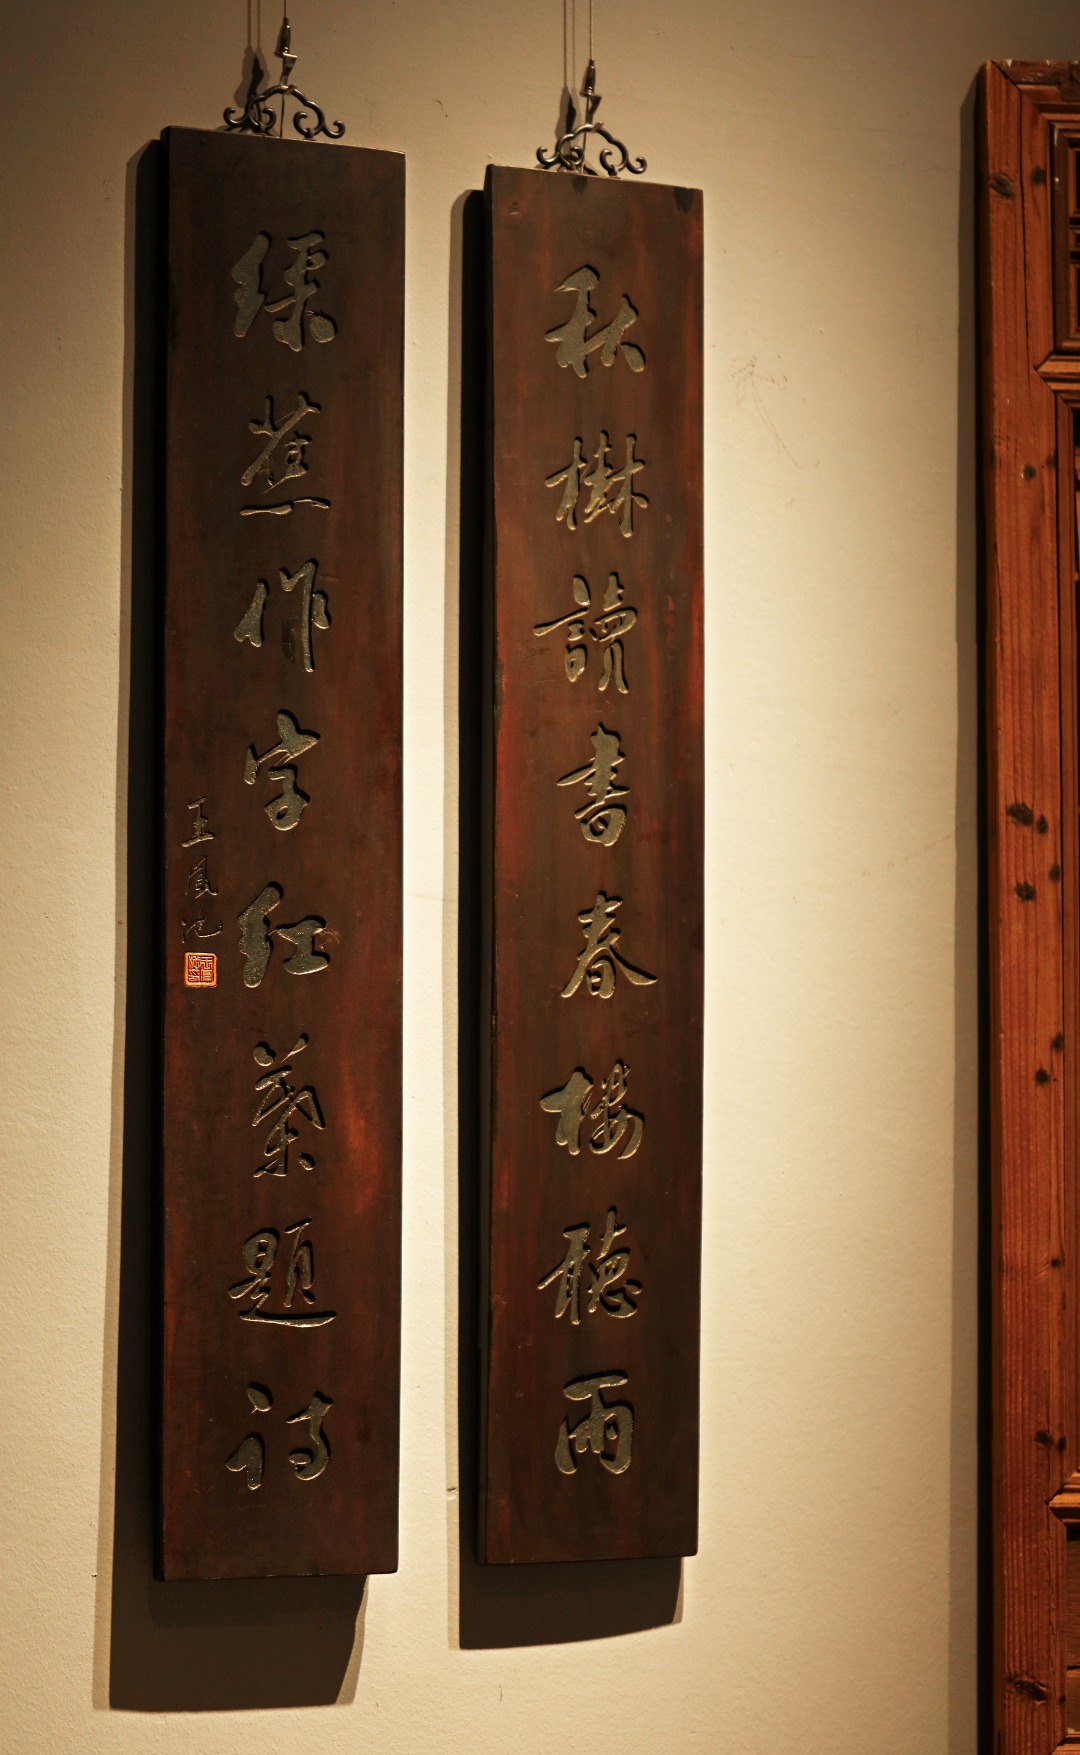 秋樹讀書春樓聽雨
緑蕉作字紅葉題詩
王鳳池